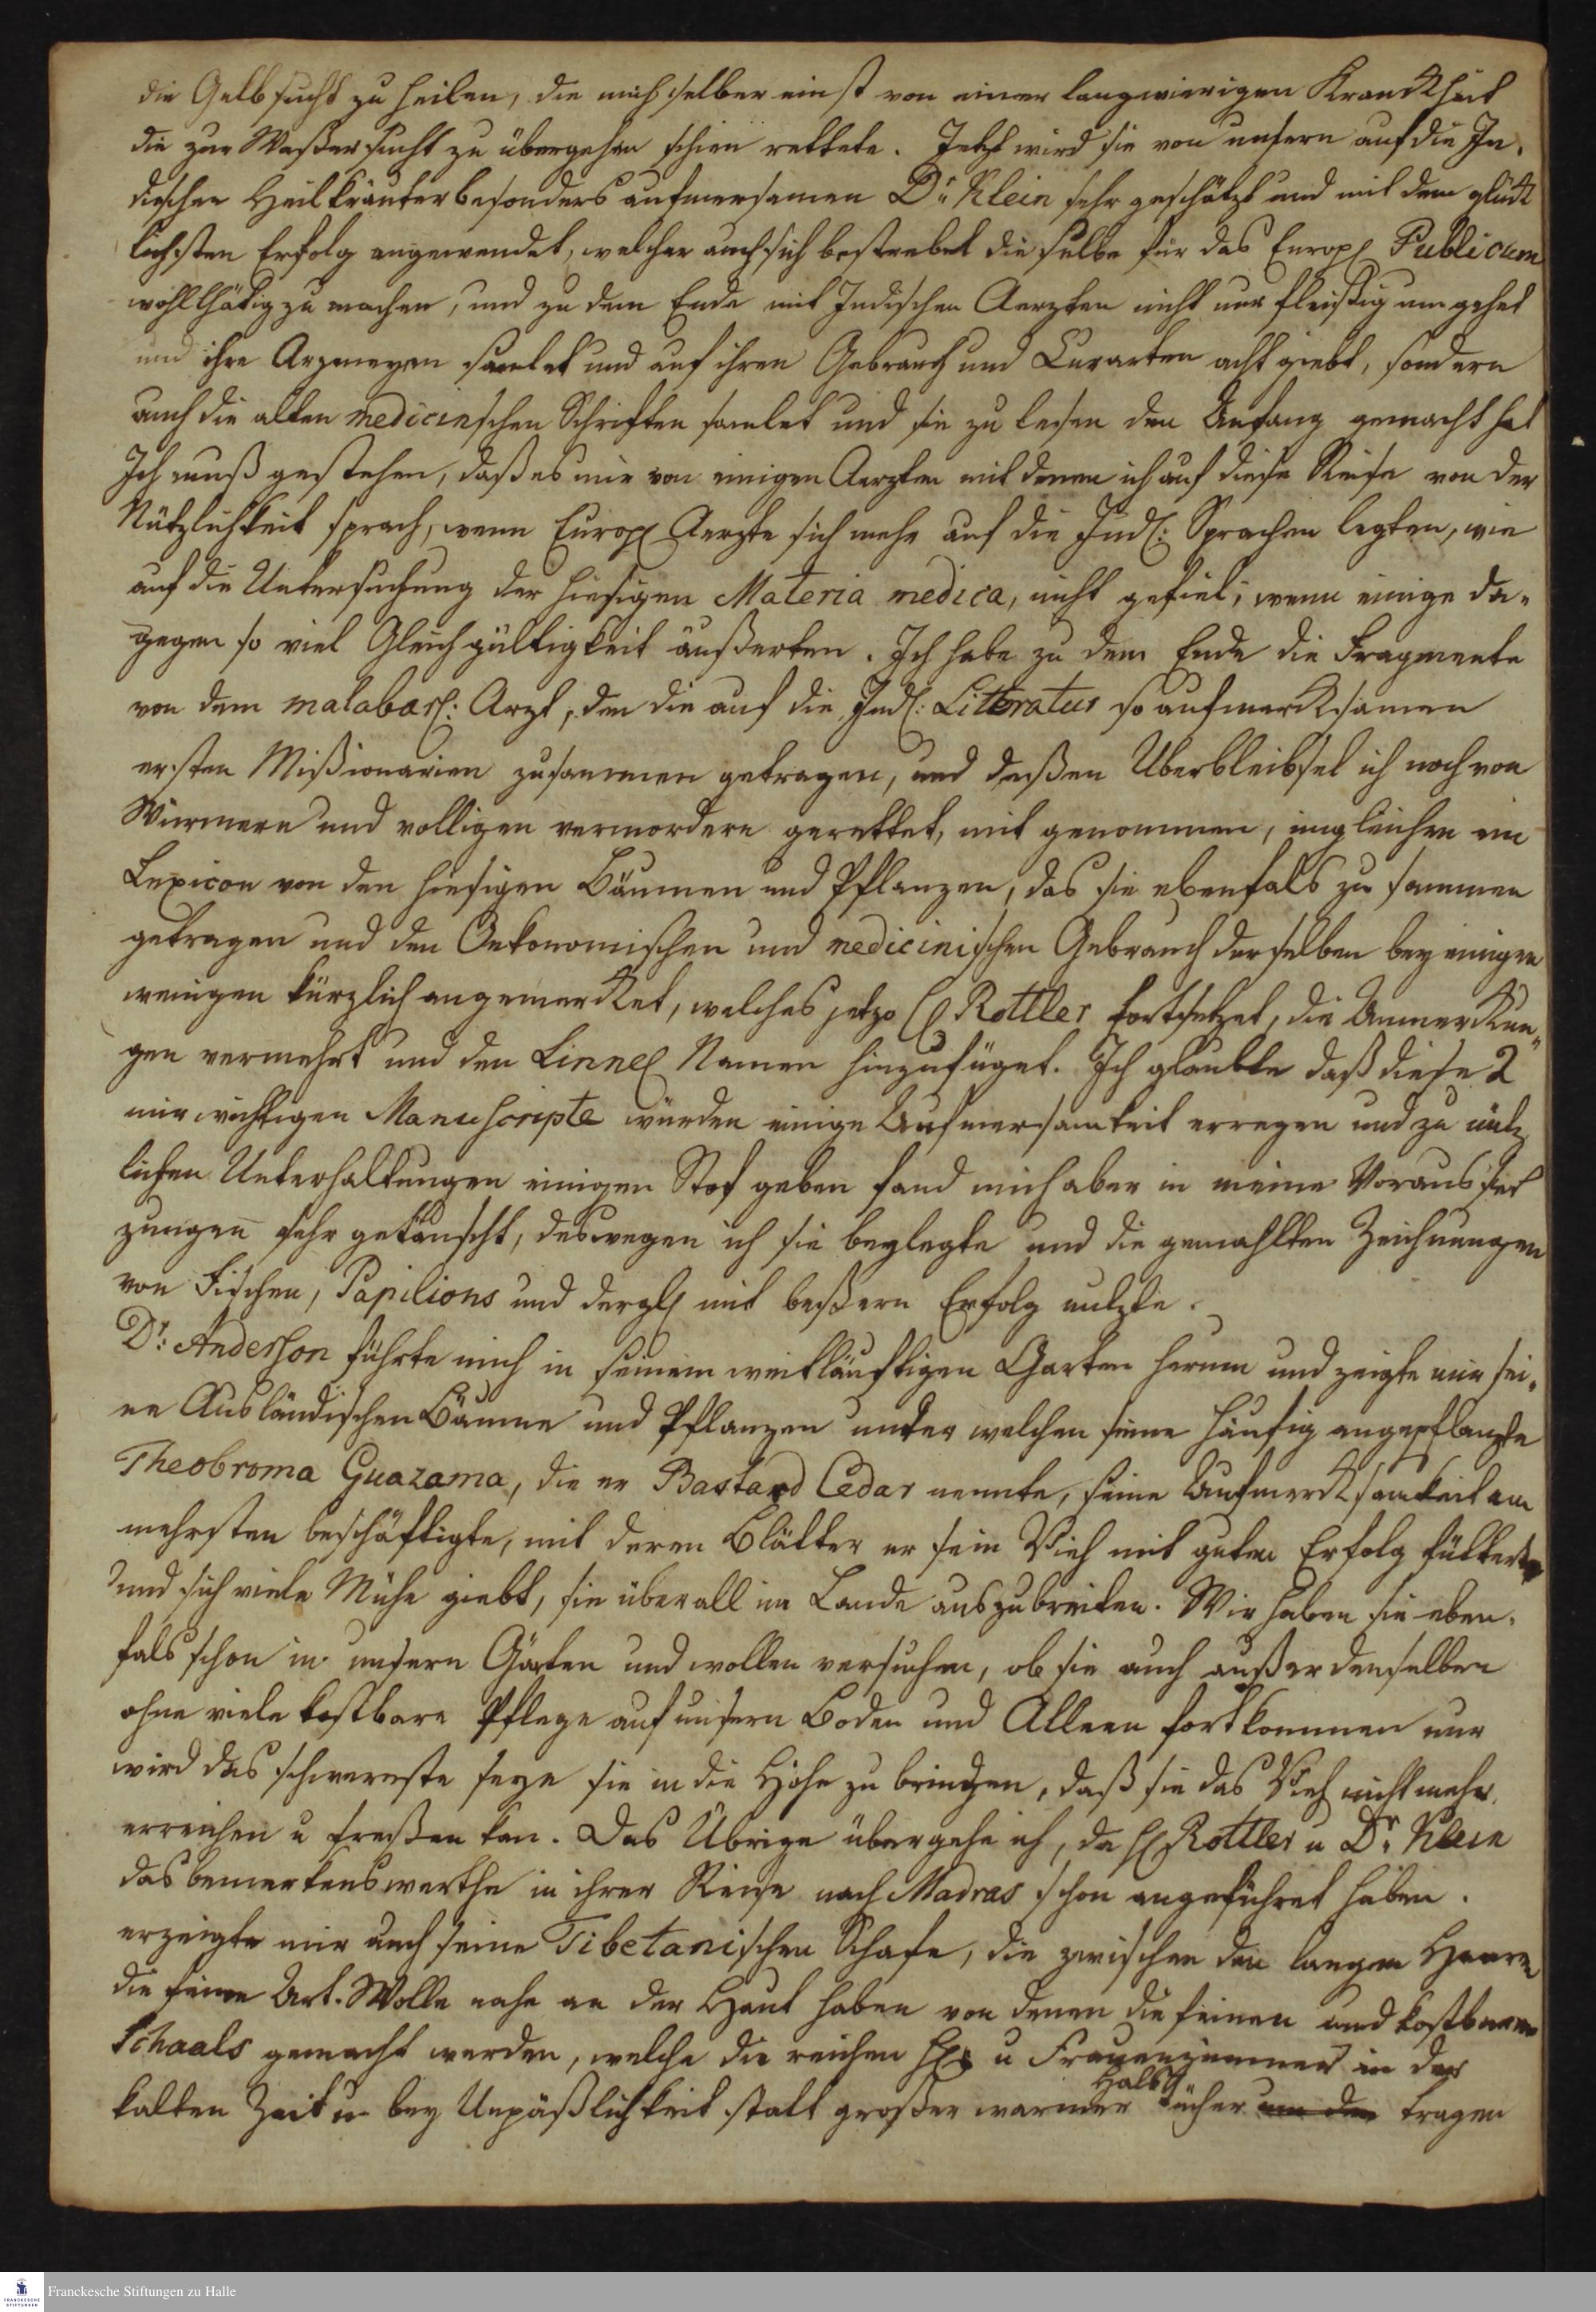 die Gelbsucht zu heilen, die mich selber einst von einer langwierigen Kranckheit
die zur Waßersucht zu übergehen schien rettete. Jetzt wird sie von unsern auf die In-
dischen Heilkräuter besonders aufmersamen Dr Klein sehr geschätzt und mit dem glück
lichsten Erfolg angewendet, welcher auch sich bestrebet dieselbe für das Europ. Publicum
wohlthätig zu machen, und zu dem Ende mit Indischen Aerzten nicht nur fleißig umgehet
und ihre Arzneyen samlet und auf ihren Gebrauch und Curarten acht giebt, sondern
auch die alten medicinschen Schriften samlet und sie zu lesen den Anfang gemacht hat
Ich muß gestehen, daß es mir von einigen Aerzten mit denen ich auf diese Reise von der
Nützlichkeit sprach, wenn Europ. Aerzte sich mehr auf die Ind.: Sprachen legten, wie
auf die Untersuchung der hiesigen Materia medica, nicht gefiel, wenn einige da-
gegen so viel Gleichgültigkeit äußerten. Ich habe zu dem Ende die Fragmente
von dem malabar.: Arzt, den die auf die Ind.: Litteratur so aufmercksamen
ersten Mißionarien zusammen getragen, und deßen Überbleibsel ich noch von
Würmern und volligen vermodern gerettet, mit genommen, imgleichen ein
Lexicon von den hiesigen Bäumen und Pflanzen, das sie ebenfals zu sammen
getragen und den Oekonomischen und medicinischen Gebrauch derselben bey einigen
wenigen kürzlich angemercket, welches jetzo H Rottler fortsetzet, die Anmerckun„
gen vermehrt und den Linne. Namen hinzufüget. Ich glaubte daß diese 2
mir wichtigen Manuscripte würden einige Aufmersamkeit erregen und zu nütz
lichen Unterhaltungen einigen Stof geben fand mich aber in meine Voraus set
zungen sehr getäuscht, deswegen ich sie beylegte und die gemahlten Zeichnungen
von Fischen, Papilions und dergl. mit beßern Erfolg nutzte.
Dr: Anderson führte mich in seinem weitläuftigen Garten herum und zeigte mir sei-
ne Ausländischen Bäume und Pflanzen unter welchen seine häufig angepflanzte
Theobroma Guazama, die er Bastard Cedar nennte, seine Aufmercksamkeit am
mehrsten beschäftigte, mit deren Blätter er sein Vieh mit guten Erfolg fütterte
und sich viele Mühe giebt, sie überall im Lande auszubreiten. Wir haben sie eben-
fals schon in unsern Gärten und wollen versuchen, ob sie auch außer denselben
ohne viele kostbare Pflege auf unsern Boden und Alleen fortkommen nur
wird das schwereste seyn sie in die Höhe zu bringen, daß sie das Vieh nicht mehr
erreichen u freßen kan. Das Übrige übergehe ich, da H. Rottler u Dr. Klein
das bemerkenswerthe in ihrer Reise nach Madras schon angeführet haben.
er zeigte mir auch seine Tibetanischen Schafe, die zwischen den langen Haaren
die feine Art Wolle nahe an der Haut haben von denen die feinen und kostbaren
Schaals gemacht werden, welche die reichen H. u Frauenzimmer in der
kalten Zeit u bey Unpäßlichkeit statt großer warmer Halstücher um den tragen
Franckesche Stiftungen zu Halle